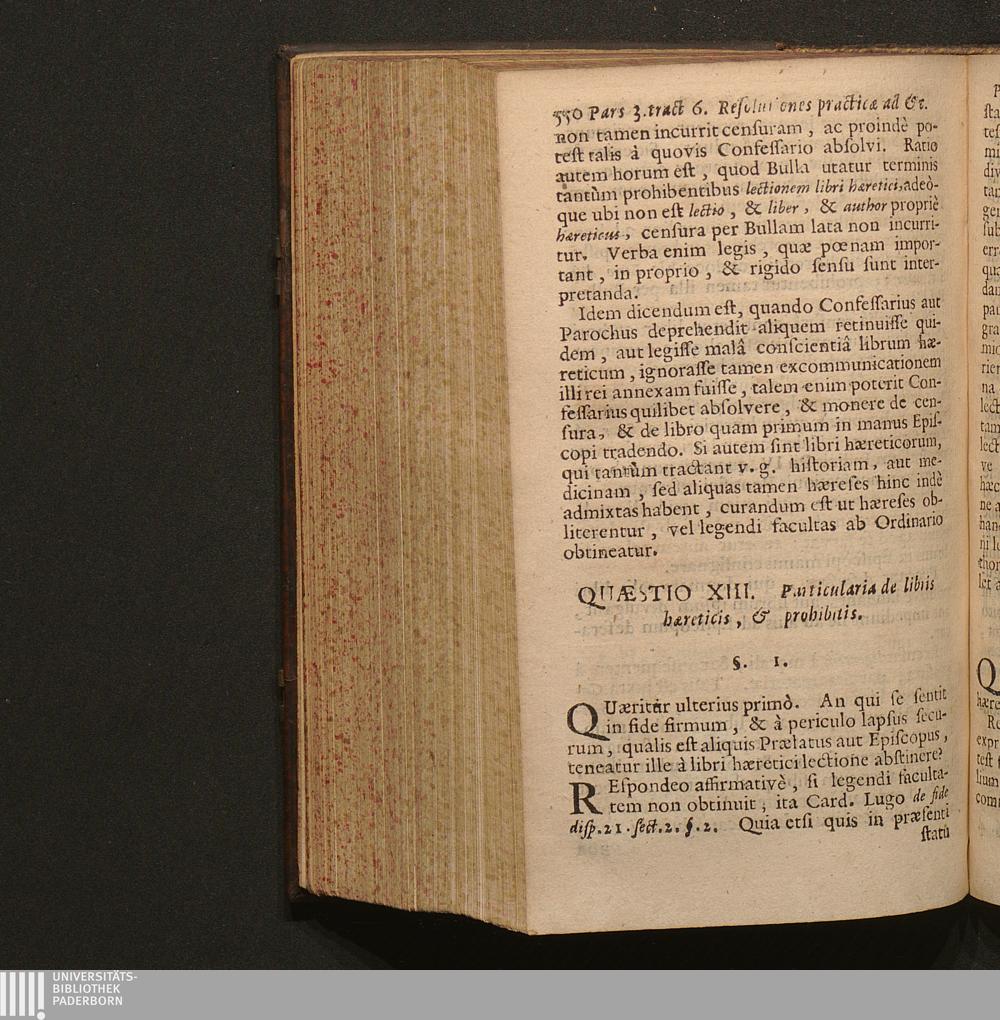 550 Pars 3. tract 6. Resolutiones practicæ ad &c.
non tamen incurrit censuram, ac proindè po-
test talis à quovis Confessario absolvi. Ratio
autem horum est, quod Bulla utatur terminis
tantùm prohibentibus lectionem libri hæretici, adeò-
que ubi non est lectio, & liber, & author propriè
hæreticus, censura per Bullam lata non incurri-
tur. Verba enim legis, quæ pœnam impor-
tant, in proprio, & rigido sensu sunt inter-
pretanda.
Idem dicendum est, quando Confessarius aut
Parochus deprehendit aliquem retinuisse qui-
dem, aut legisse malâ conscientiâ librum hæ-
reticum, ignorasse tamen excommunicationem
illi rei annexam fuisse, talem enim poterit Con-
fessarius quilibet absolvere, & monere de cen-
sura, & de libro quam primum in manus Epis-
copi tradendo. Si autem sint libri hæreticorum,
qui tantùm tractant v. g. historiam, aut me-
dicinam, sed aliquas tamen hæreses hinc indè
admixtas habent, curandum est ut hæreses ob-
literentur, vel legendi facultas ab Ordinario
obtineatur.
QUÆSTIO XIII. Particularia de libris
hæreticis, & prohibitis.
§. 1.
QUæritur ulterius primò. An qui se sentit
in fide firmum, & à periculo lapsus secu-
rum, qualis est aliquis Prælatus aut Episcopus,
teneatur ille à libri hæretici lectione abstinere?
REspondeo affirmativè, si legendi faculta-
tem non obtinuit; ita Card. Lugo de fide
disp. 21. sect. 2. §. 2. Quia etsi quis in præsenti
statû
UNIVERSITÄTS-
BIBLIOTHEK
PADERBORN